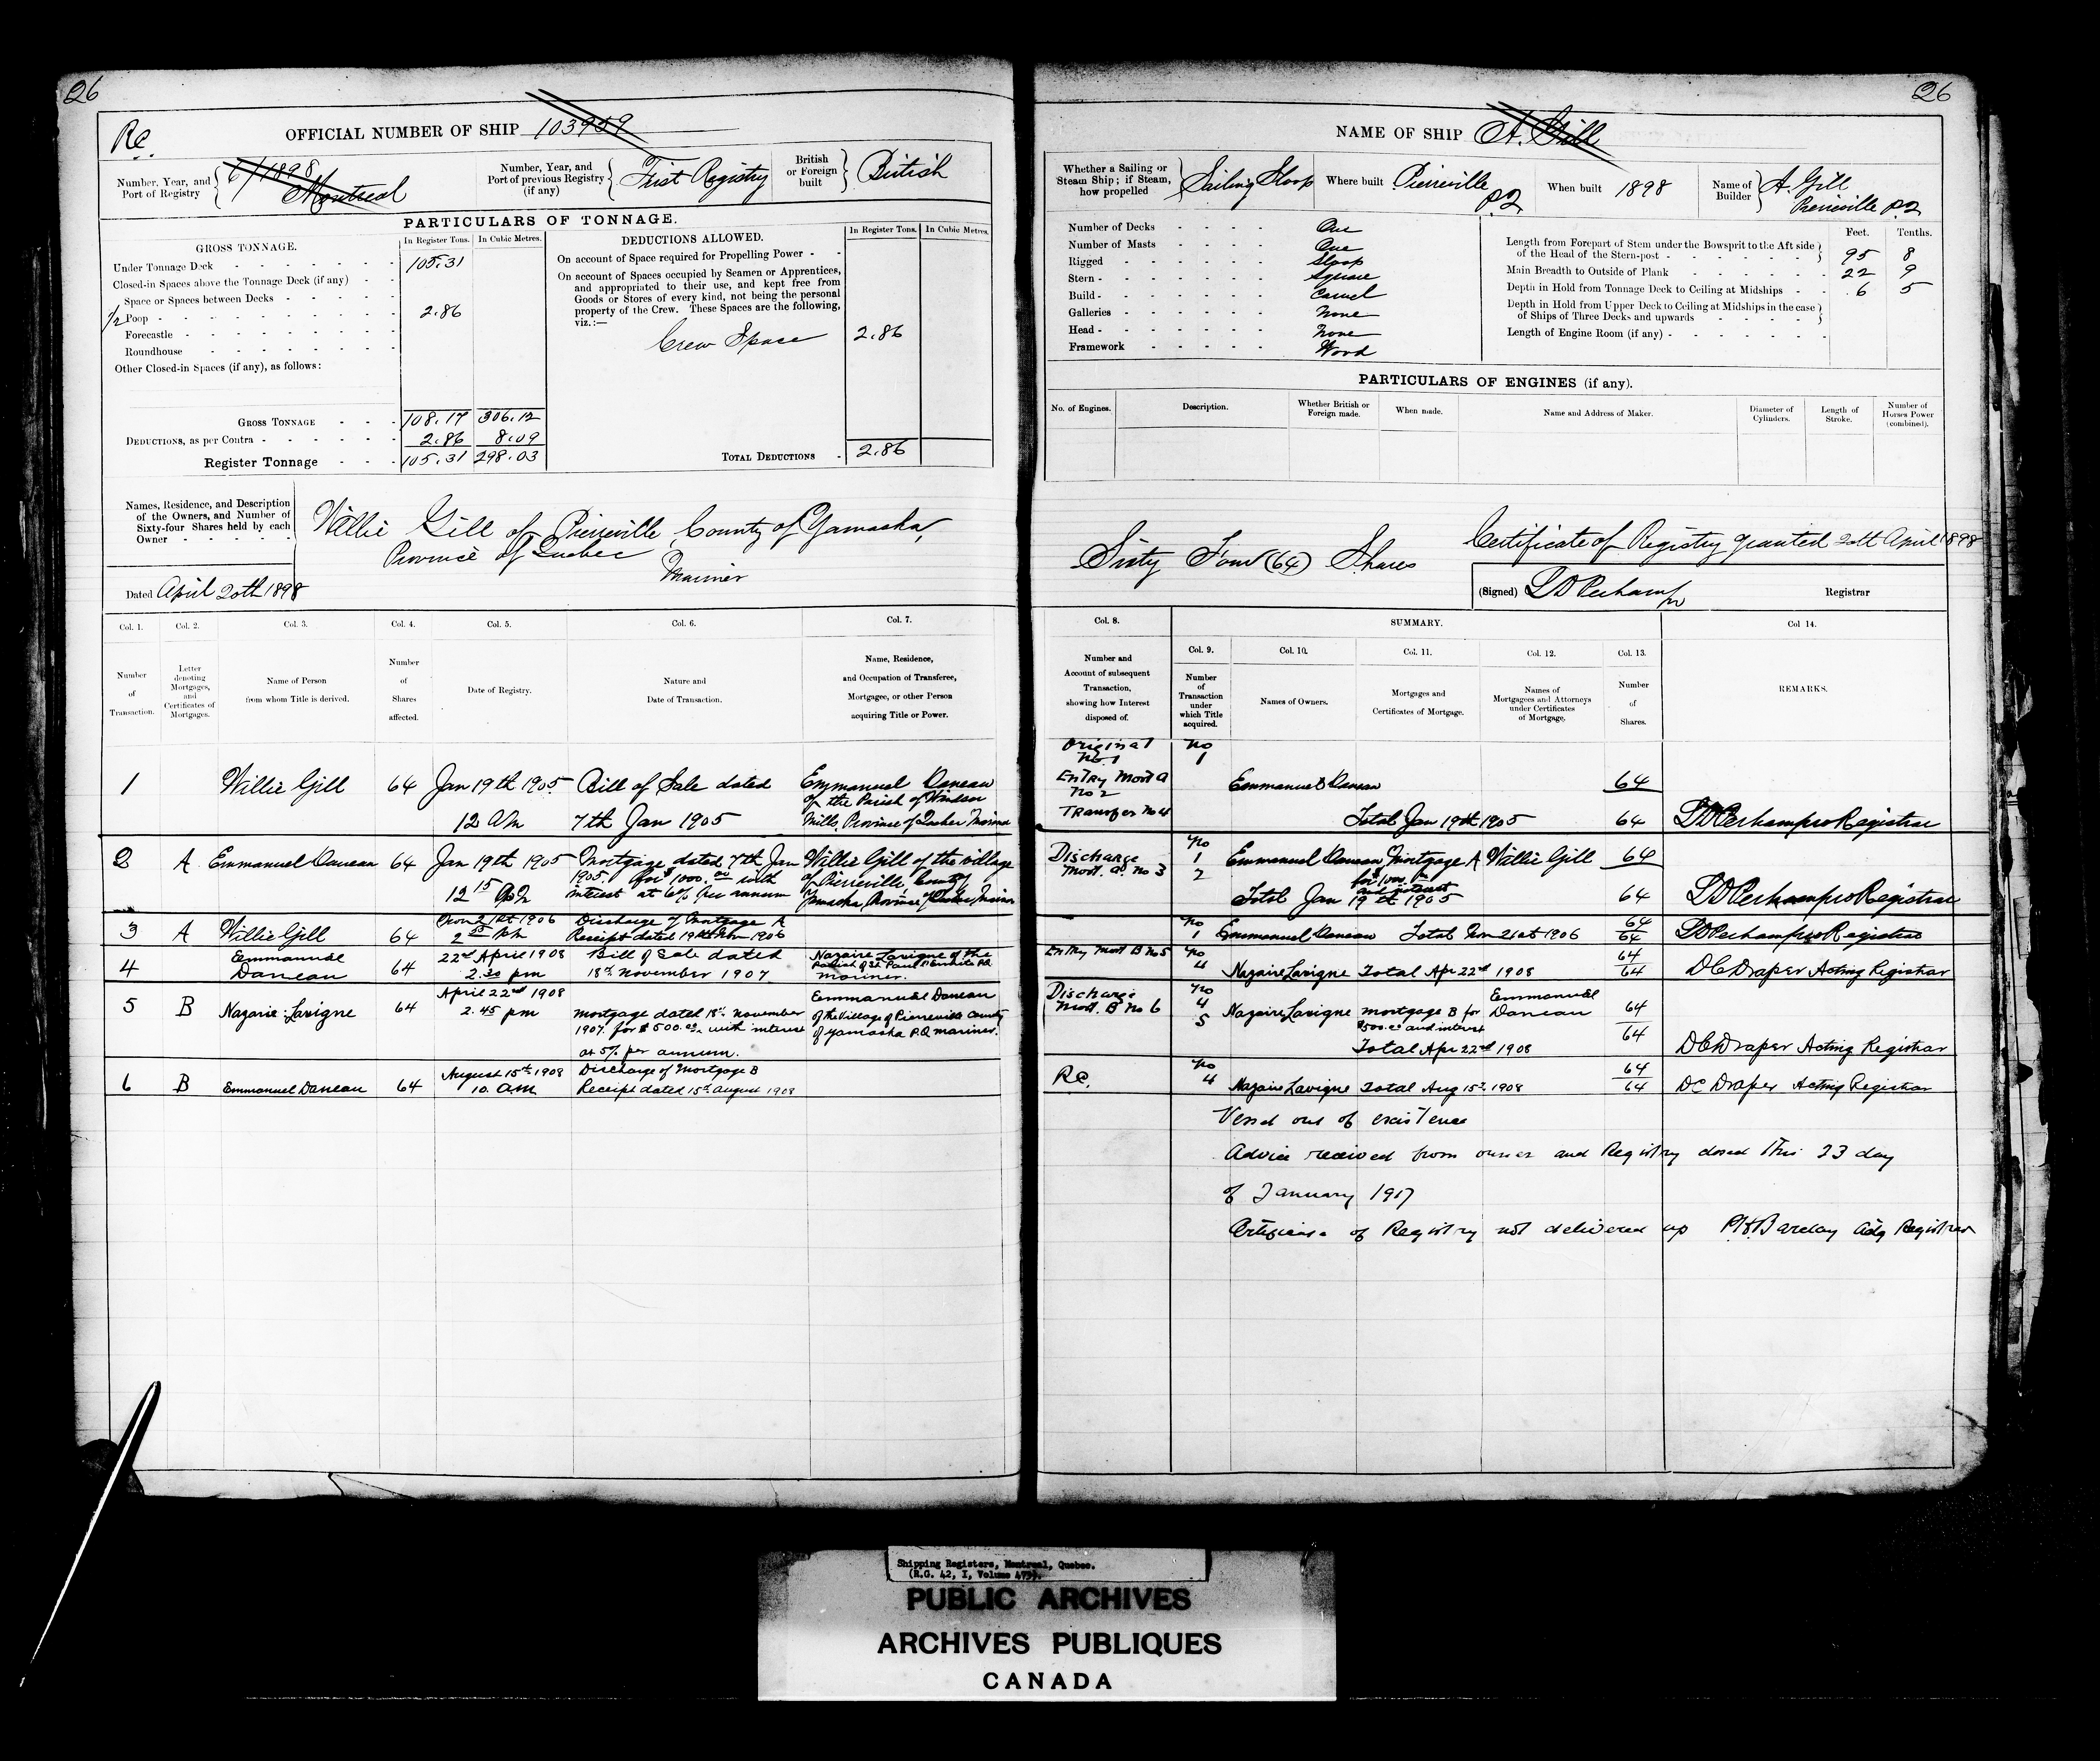 26
Re.
OFFICIAL NUMBER OF SHIP 103959
Number, Year, and Port of Registry 6/1898 Montreal
Number, Year, and Port of previous Registry (if any) First Registry
British or Foreign built British
PARTICULARS OF TONNAGE.
GROSS TONNAGE. In Register Tons. In Cubic Metres.
Under Tonnage Deck 105.31
Closed-in Spaces above the Tonnage Deck (if any)
Space or Spaces between Decks
1/2 Poop 2.86
Forecastle
Roundhouse
Other Closed-in Spaces (if any), as follows:
GROSS TONNAGE 108.17 306.12
DEDUCTIONS, as per Contra 2.86 8.09
Register Tonnage 105.31 298.03
DEDUCTIONS ALLOWED. In Register Tons. In Cubic Metres.
On account of Space required for Propelling Power
On account of Spaces occupied by Seamen or Apprentices,
and appropriated to their use, and kept free from
Goods or Stores of every kind, not being the personal
property of the Crew. These Spaces are the following,
viz.:—
Crew Space 2.86
TOTAL DEDUCTIONS 2.86
Names, Residence, and Description
of the Owners, and Number of
Sixty-four Shares held by each
Owner
Willie Gill of Pierreville County of Yamaska,
Province of Quebec
Mariner
Dated April 20th 1898
Col. 1. Col. 2. Col. 3. Col. 4. Col. 5. Col. 6. Col. 7.
Number of Transaction.
Letter denoting Mortgages, and Certificates of Mortgages.
Name of Person from whom Title is derived.
Number of Shares affected.
Date of Registry.
Nature and Date of Transaction.
Name, Residence, and Occupation of Transferee, Mortgagee, or other Person acquiring Title or Power.
1 Willie Gill 64 Jan 19th 1905 Bill of Sale dated Emmanuel Daneau
of the Parish of Windsor
12 am 7th Jan 1905 Mills, Province of Quebec Mariner
2 A Emmanuel Daneau 64 Jan 19th 1905 Mortgage dated 7th Jan Willie Gill of the village
1905. for $1000.00 with of Pierreville, County
12 15 pm interest at 6% per annum Yamaska, Province of Quebec Mariner
3 A Willie Gill 64 Nov 21st 1906 Discharge of Mortgage A
2 pm Receipt dated 19th Nov 1906
4 Emmanuel Daneau 64 22nd April 1908 Bill of Sale dated Nazaire Lavigne of the
2.30 pm 18th November 1907. Parish of St Paul L'Ermite P.Q.
mariner.
5 B Nazaire Lavigne 64 April 22nd 1908 Emmanuel Daneau
2.45 pm mortgage dated 18th November of the Village of Pierreville County
1907. for $500.00. with interest of Yamaska P.Q. mariner.
at 5% per annum.
6 B Emmanuel Daneau 64 August 15th 1908 Discharge of Mortgage B
10. am Receipt dated 15th August 1908
26
NAME OF SHIP A. Gill
Whether a Sailing or Steam Ship; if Steam, how propelled Sailing Sloop
Where built Pierreville P.Q.
When built 1898
Name of Builder A. Gill Pierreville P.Q.
Number of Decks One
Number of Masts One
Rigged Sloop
Stern Square
Build Carvel
Galleries None
Head None
Framework Wood
Feet. Tenths.
Length from Forepart of Stem under the Bowsprit to the Aft side
of the Head of the Stern-post 95 8
Main Breadth to Outside of Plank 22 9
Depth in Hold from Tonnage Deck to Ceiling at Midships 6 5
Depth in Hold from Upper Deck to Ceiling at Midships in the case
of Ships of Three Decks and upwards
Length of Engine Room (if any)
PARTICULARS OF ENGINES (if any).
No. of Engines. Description. Whether British or Foreign made. When made. Name and Address of Maker. Diameter of Cylinders. Length of Stroke. Number of Horses Power (combined).
Sixty Four (64) Shares
Certificate of Registry granted 20th April 1898
(Signed) Registrar
Col. 8. SUMMARY. Col 14.
Col. 9. Col. 10. Col. 11. Col. 12. Col. 13.
Number and Account of subsequent Transaction, showing how Interest disposed of.
Number of Transaction under which Title acquired.
Names of Owners.
Mortgages and Certificates of Mortgage.
Names of Mortgagees and Attorneys under Certificates of Mortgage.
Number of Shares.
REMARKS.
Original No 1 No 1
Entry Mort A No 2 Emmanuel Daneau 64
Transfer No 4 Total Jan 19th 1905 64 pro Registrar
Discharge Mort. A. No 3 No 1 2 Emmanuel Daneau Mortgage A Willie Gill 64
for $1000.
and interest
Total Jan 19th 1905 64 pro Registrar
No 1 Emmanuel Daneau Total Nov 21st 1906 64 64 pro Registrar
Entry Mort B No 5 No 4 Nazaire Lavigne Total Apr 22nd 1908 64 64 DC Draper Acting Registrar
Discharge Mort. B No 6 No 4 5 Nazaire Lavigne Mortgage B for Emmanuel Daneau 64
$500.00 and interest
Total Apr 22nd 1908 64 DC Draper Acting Registrar
Re. No 4 Nazaire Lavigne Total Aug 15th 1908 64 64 DC Draper Acting Registrar
Vessel out of existence
Advice received from owner and Registry closed this 23 day
of January 1917
Certificate of Registry not delivered up Barclay Actg Registrar
Shipping Registers, Montreal, Quebec.
(R.G. 42, I, Volume 475).
PUBLIC ARCHIVES
ARCHIVES PUBLIQUES
CANADA